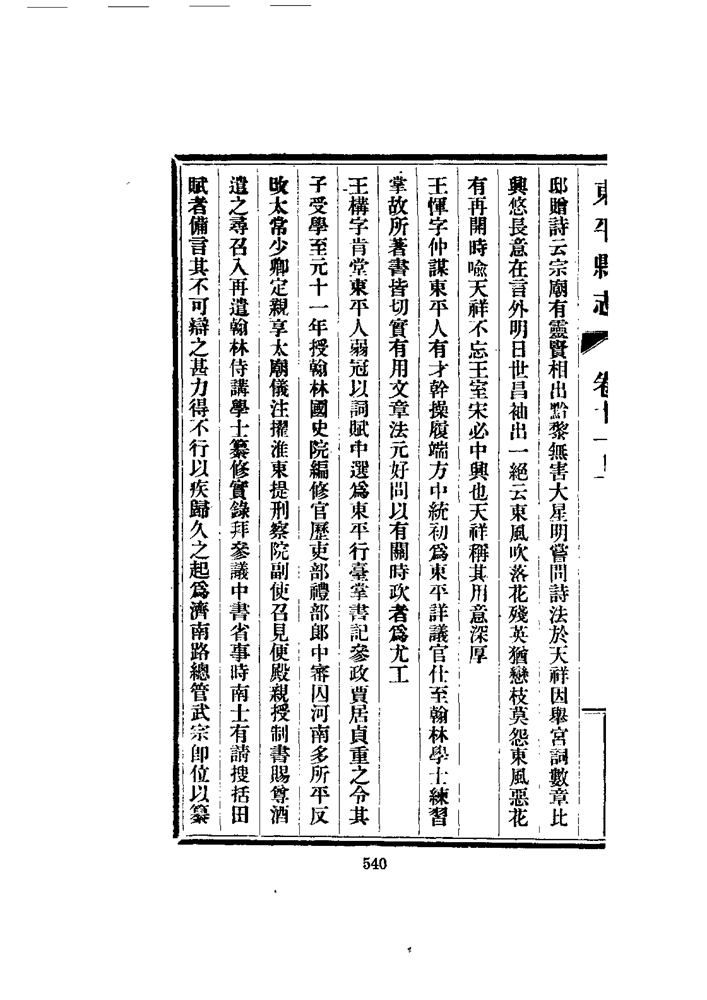 東平縣志　卷十一
邸贈詩云宗廟有靈賢相出黔黎無害大星明嘗問詩法於天祥因舉宮詞數章比
興悠長意在言外明日世昌袖出一絕云東風吹落花殘英猶戀枝莫怨東風惡花
有再開時喩天祥不忘王室宋必中興也天祥稱其用意深厚
王惲字仲謀東平人有才幹操履端方中統初爲東平詳議官仕至翰林學士練習
掌故所著書皆切實有用文章法元好問以有關時政者爲尤工
王構字肯堂東平人弱冠以詞賦中選爲東平行臺掌書記參政賈居貞重之令其
子受學至元十一年授翰林國史院編修官歷吏部禮部郞中審囚河南多所平反
改太常少卿定親享太廟儀注擢淮東提刑察院副使召見便殿親授制書賜尊酒
遣之尋召入再遣翰林侍講學士纂修實錄拜參議中書省事時南士有請搜括田
賦者備言其不可辯之甚力得不行以疾歸久之起爲濟南路總管武宗卽位以纂
540